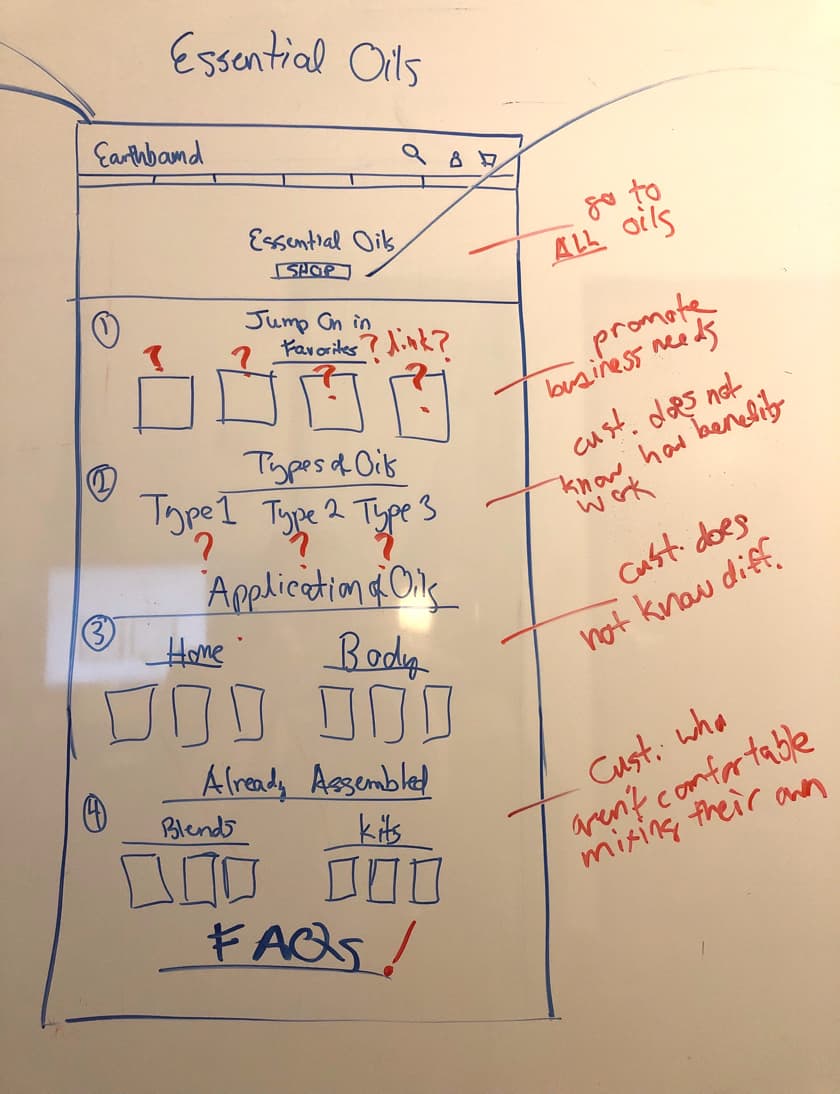 Essential Oils
Earthbamd
Essential Oils
SHOP
go to
ALL oils
1
Jump On in
Favorites ? link?
? ? ? ?
promote
business needs
2
Types of Oils
Type 1 Type 2 Type 3
? ? ?
cust. does not
know how benefits
work
Application of Oils
3
Home Body
cust. does
not know diff.
Already Assembled
4
Blends Kits
Cust. who
aren't comfortable
mixing their own
FAQs!